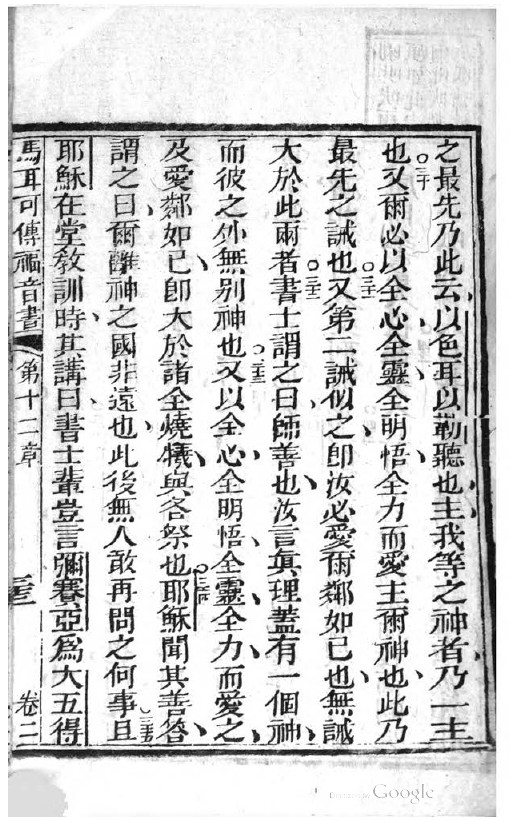 之最先乃此云以色耳以勒聽也主我等之神者乃一主
也○三十又爾必以全心全靈全明悟全力而愛主爾神也此乃
最先之誡也○三十一又第二誡似之卽汝必愛爾鄰如已也無誡
大於此兩者○三十二書士謂之曰師善也汝言眞理蓋有一個神
而彼之外無別神也○三十三又以全心全明悟全靈全力而愛之
及愛鄰如已卽大於諸全燒犧與各祭也○三十四耶穌聞其善答
謂之曰爾離神之國非遠也此後無人敢再問之何事且○三十五
耶穌在堂敎訓時其講曰書士輩豈言彌賽亞爲大五得
馬耳可傳福音書 第十二章 卷二
Google